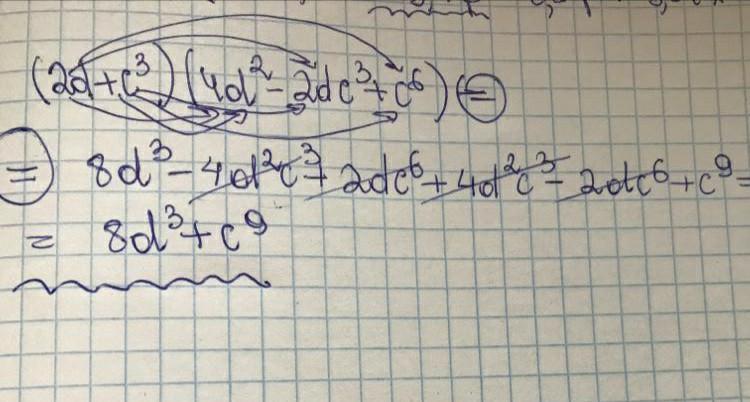 (2d+c³)(4d²-2dc³+c⁶)=
= 8d³-4d²c³+2dc⁶+4d²c³-2dc⁶+c⁹=
= 8d³+c⁹